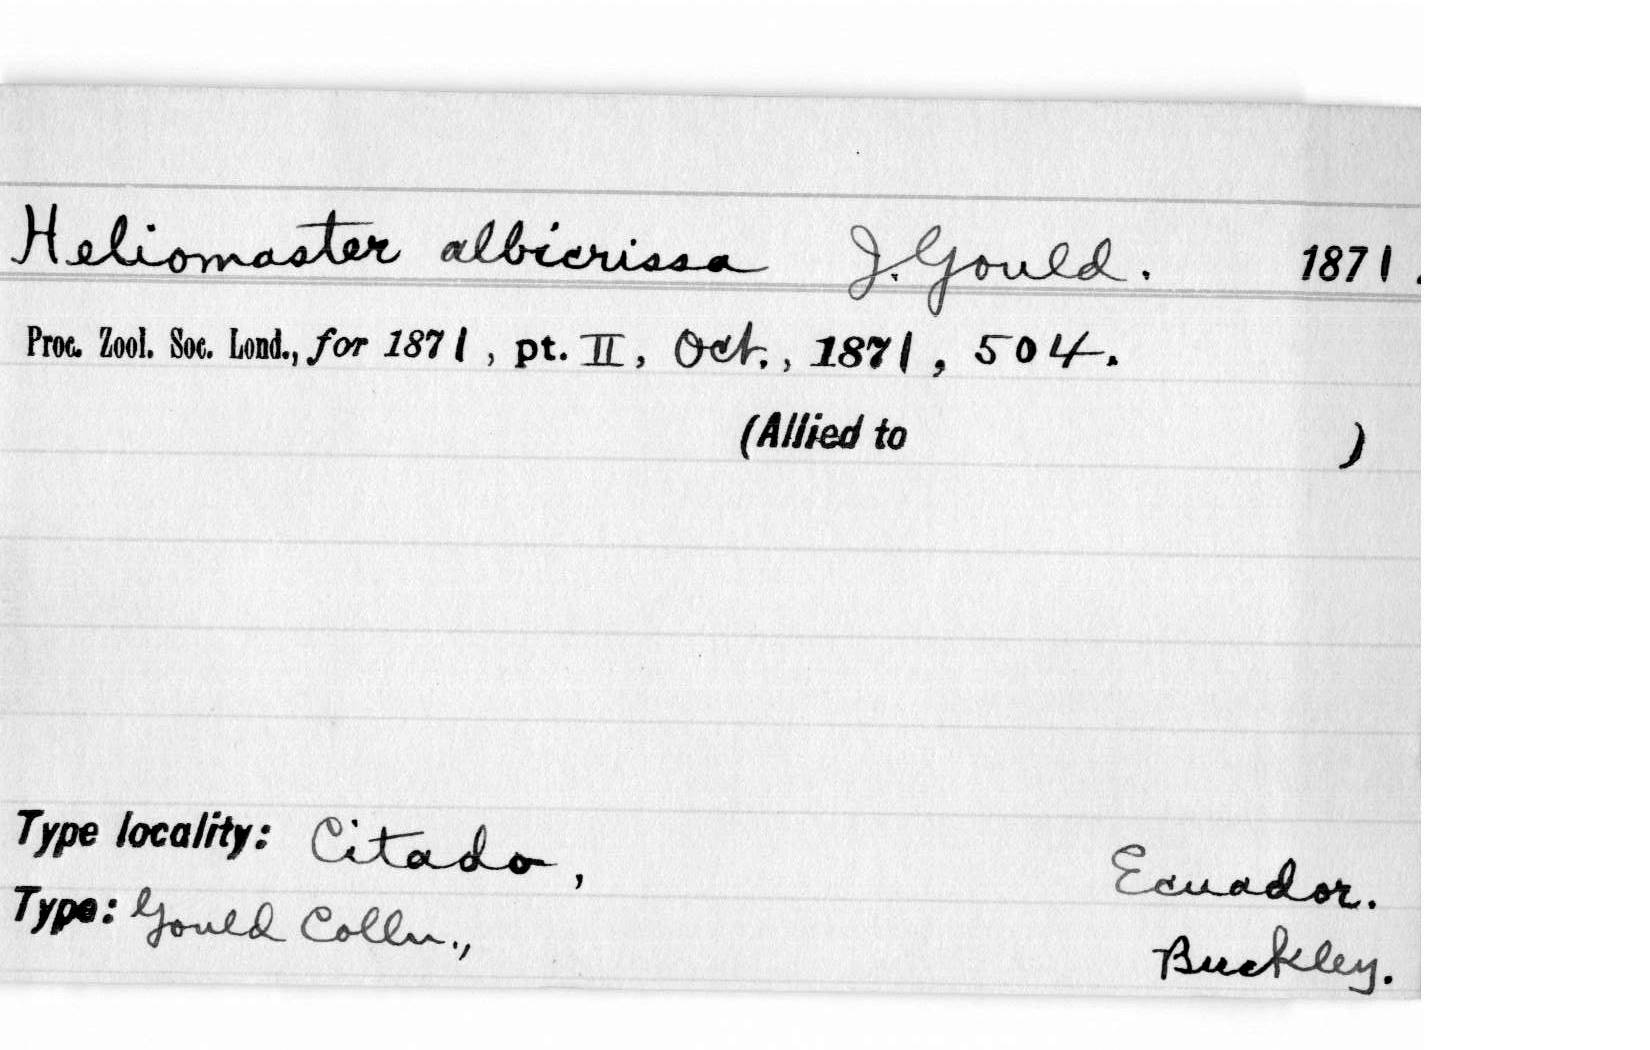 Heliomaster albicrissa J. Gould. 1871.
Proc. Zool. Soc. Lond., for 1871, pt. II, Oct., 1871, 504.
(Allied to )
Type locality: Citado, Ecuador.
Type: Gould Colln., Buckley.